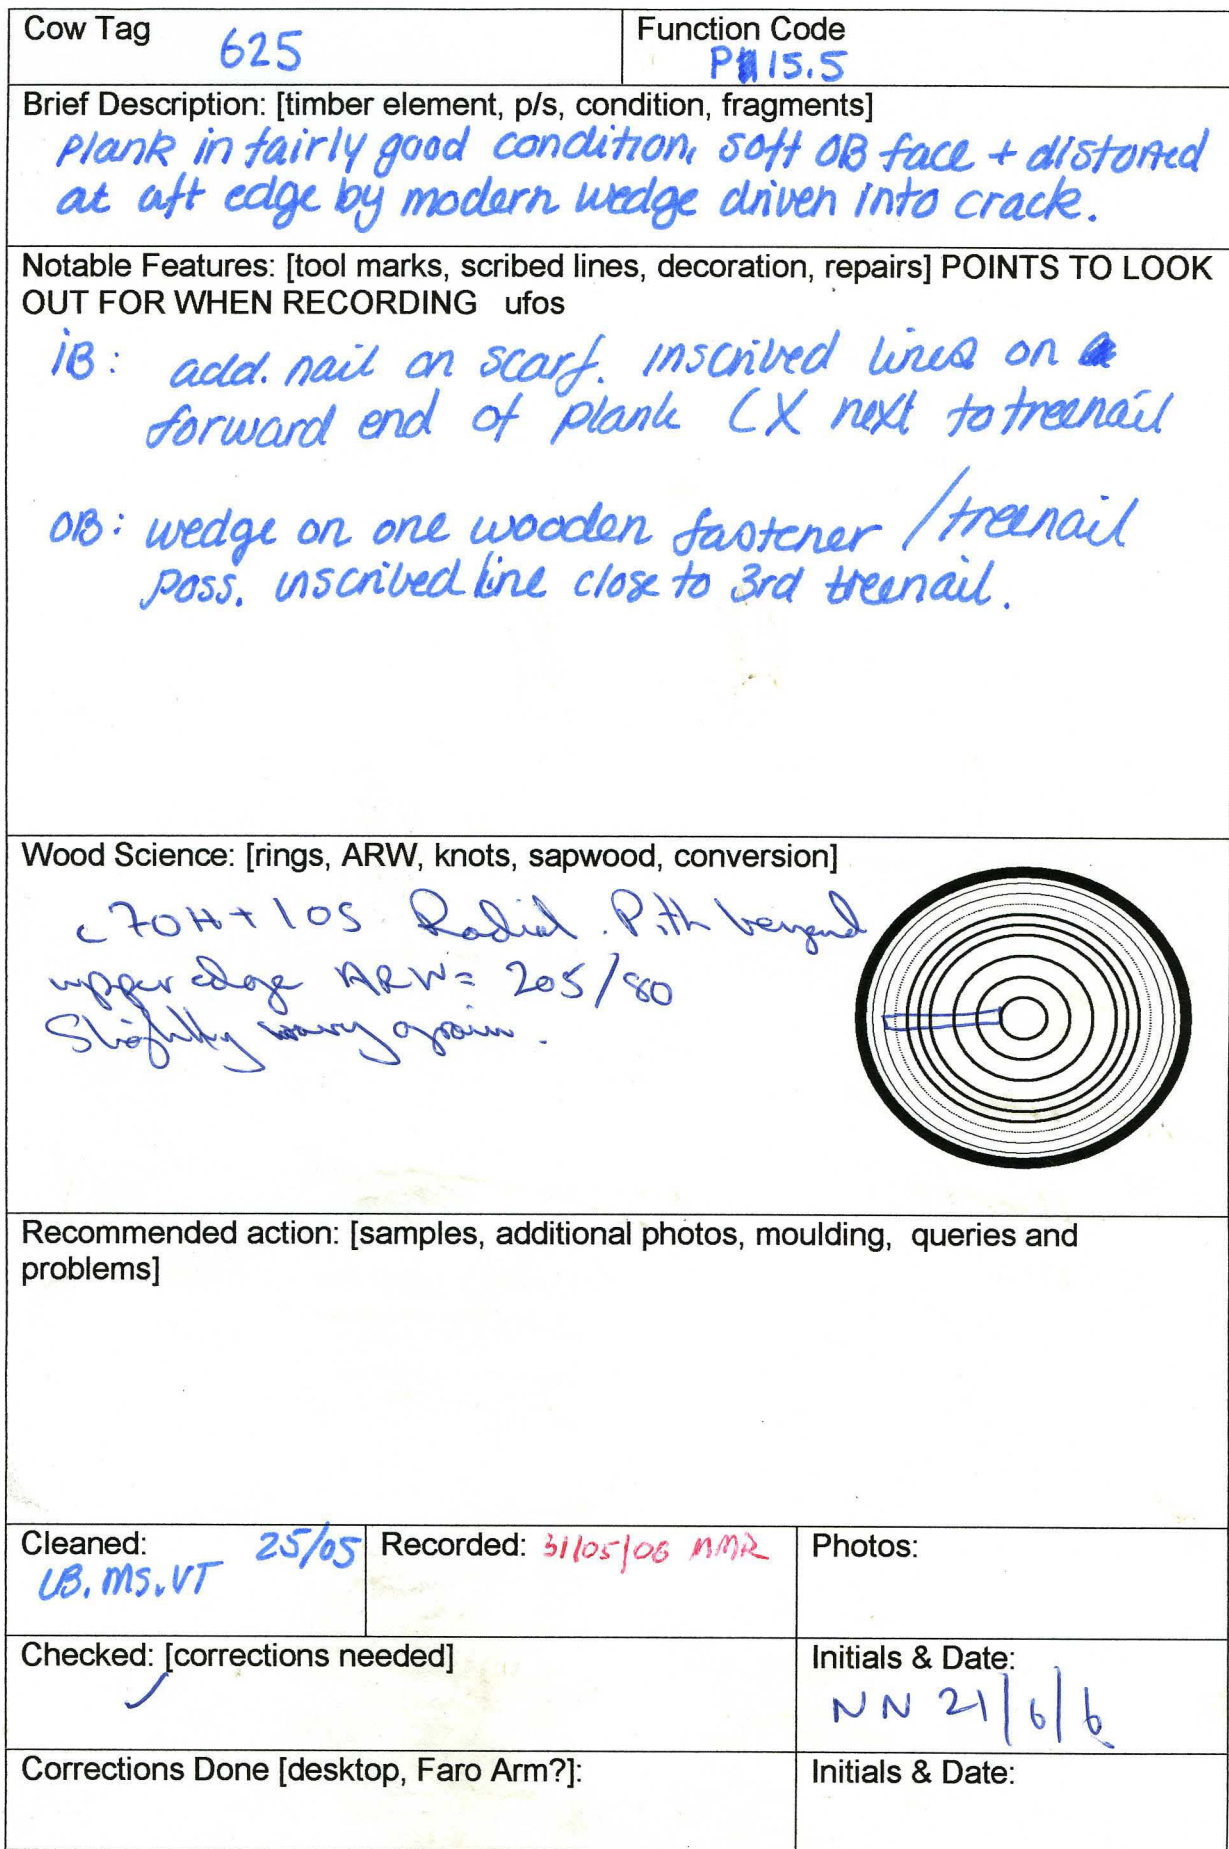 Cow Tag 625
Function Code
P 15.5
Brief Description: [timber element, p/s, condition, fragments]
Plank in fairly good condition, soft OB face + distorted
at aft edge by modern wedge driven into crack.
Notable Features: [tool marks, scribed lines, decoration, repairs] POINTS TO LOOK
OUT FOR WHEN RECORDING ufos
IB: add. nail on scarf. inscribed lines on
forward end of plank (X next to treenail
OB: wedge on one wooden fastener / treenail
poss. inscribed line close to 3rd treenail.
Wood Science: [rings, ARW, knots, sapwood, conversion]
c 70H + 10S Radial. Pith beyond
upper edge ARW = 205/80
Slightly wavy grain.
Recommended action: [samples, additional photos, moulding, queries and
problems]
Cleaned: 25/05
LB. MS. VT
Recorded: 31/05/06 NMR
Photos:
Checked: [corrections needed]
Initials & Date:
NN 21/6/6
Corrections Done [desktop, Faro Arm?]:
Initials & Date: